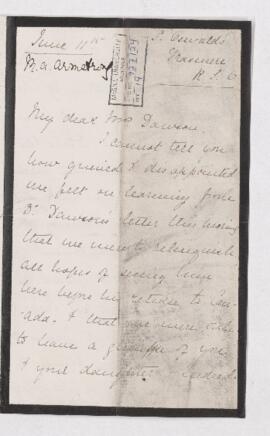 June 11th
M. A. Armstrong
S. Oswald's
Grasmere
R.S.O
My dear Mrs Dawson
I cannot tell you
how grieved & disappointed
we felt on learning from
Dr Dawson's letter this morning
that we were to relinquish
all hopes of seeing him
here before he returns to Can-
ada. & that we were only
to have a glimpse of you
& your daughter indeed